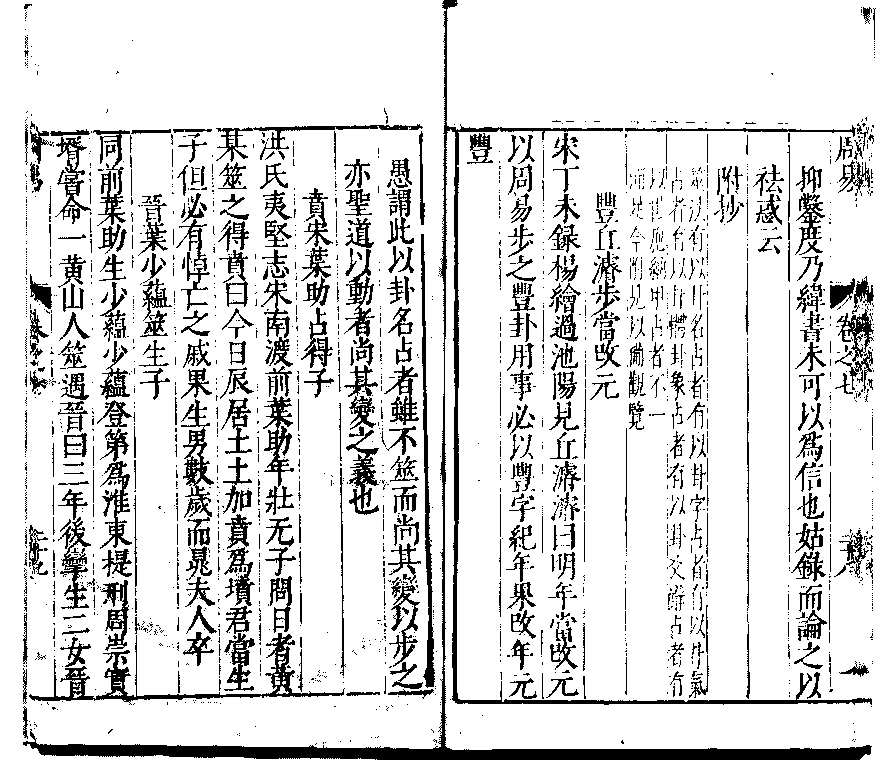 周易
卷之七
抑鑿度乃緯書未可以爲信也姑錄而論之以
祛惑云
附抄
筮法有以卦名占者有以卦字占者有以卦氣
占者有以卦體卦象占者有以卦爻辭占者有
以世應納甲占者不一
而足今附見以備觀覽
豐丘濬步當改元
宋丁未錄楊繪過池陽見丘濬濬曰明年當改元
以周易步之豐卦用事必以豐字紀年果改年元
豐
愚謂此以卦名占者雖不筮而尚其變以步之
亦聖道以動者尚其變之義也
賁宋葉助占得子
洪氏夷堅志宋南渡前葉助年壯无子問日者黃
某筮之得賁曰今日辰居土土加賁爲墳君當生
子但必有悼亡之戚果生男數歲而晁夫人卒
晉葉少蘊筮生子
同前葉助生少蘊少蘊登第爲淮東提刑周崇實
壻嘗命一黃山人筮遇晉曰三年後孿生二女晉